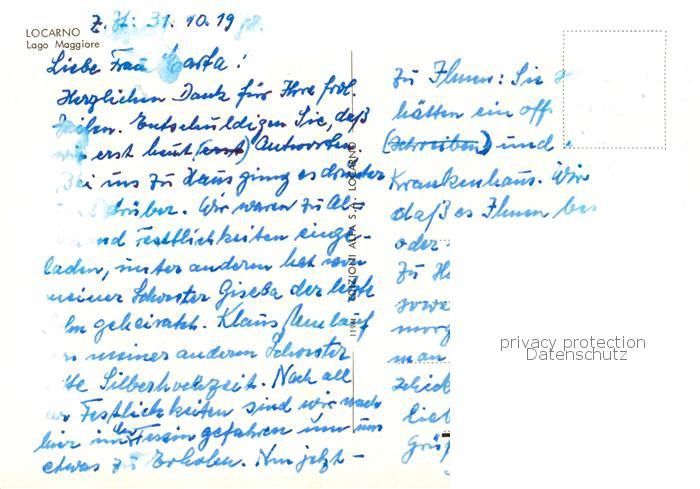 LOCARNO
Lago Maggiore
Z. Zt: 31. 10. 19
Liebe Frau Marta!
Herzlichen Dank für Ihre frdl.
Zeilen. Entschuldigen Sie, daß
wir erst heut (erst) Antworten
Bei uns zu Haus ging es drunter
und drüber. Wir waren zu
und Festlichkeiten einge-
laden, unter anderem hat von
meiner Schwester Gisela der
geheiratet. Klaus
meiner anderen Schwester
Silberhochzeit. Nach all
Festlichkeiten sind wir nach
hier ins Tessin gefahren um uns
etwas zu Erholen. Nun jetzt -
EDIZIONI ALFA S.A. - LOCARNO
zu Ihnen: Sie
hätten ein off
(Schreiben) und
Krankenhaus. Wir
daß es Ihnen bes
oder
zu
sowe
morg
man
schick
Lieb
Grüß
privacy protection
Datenschutz